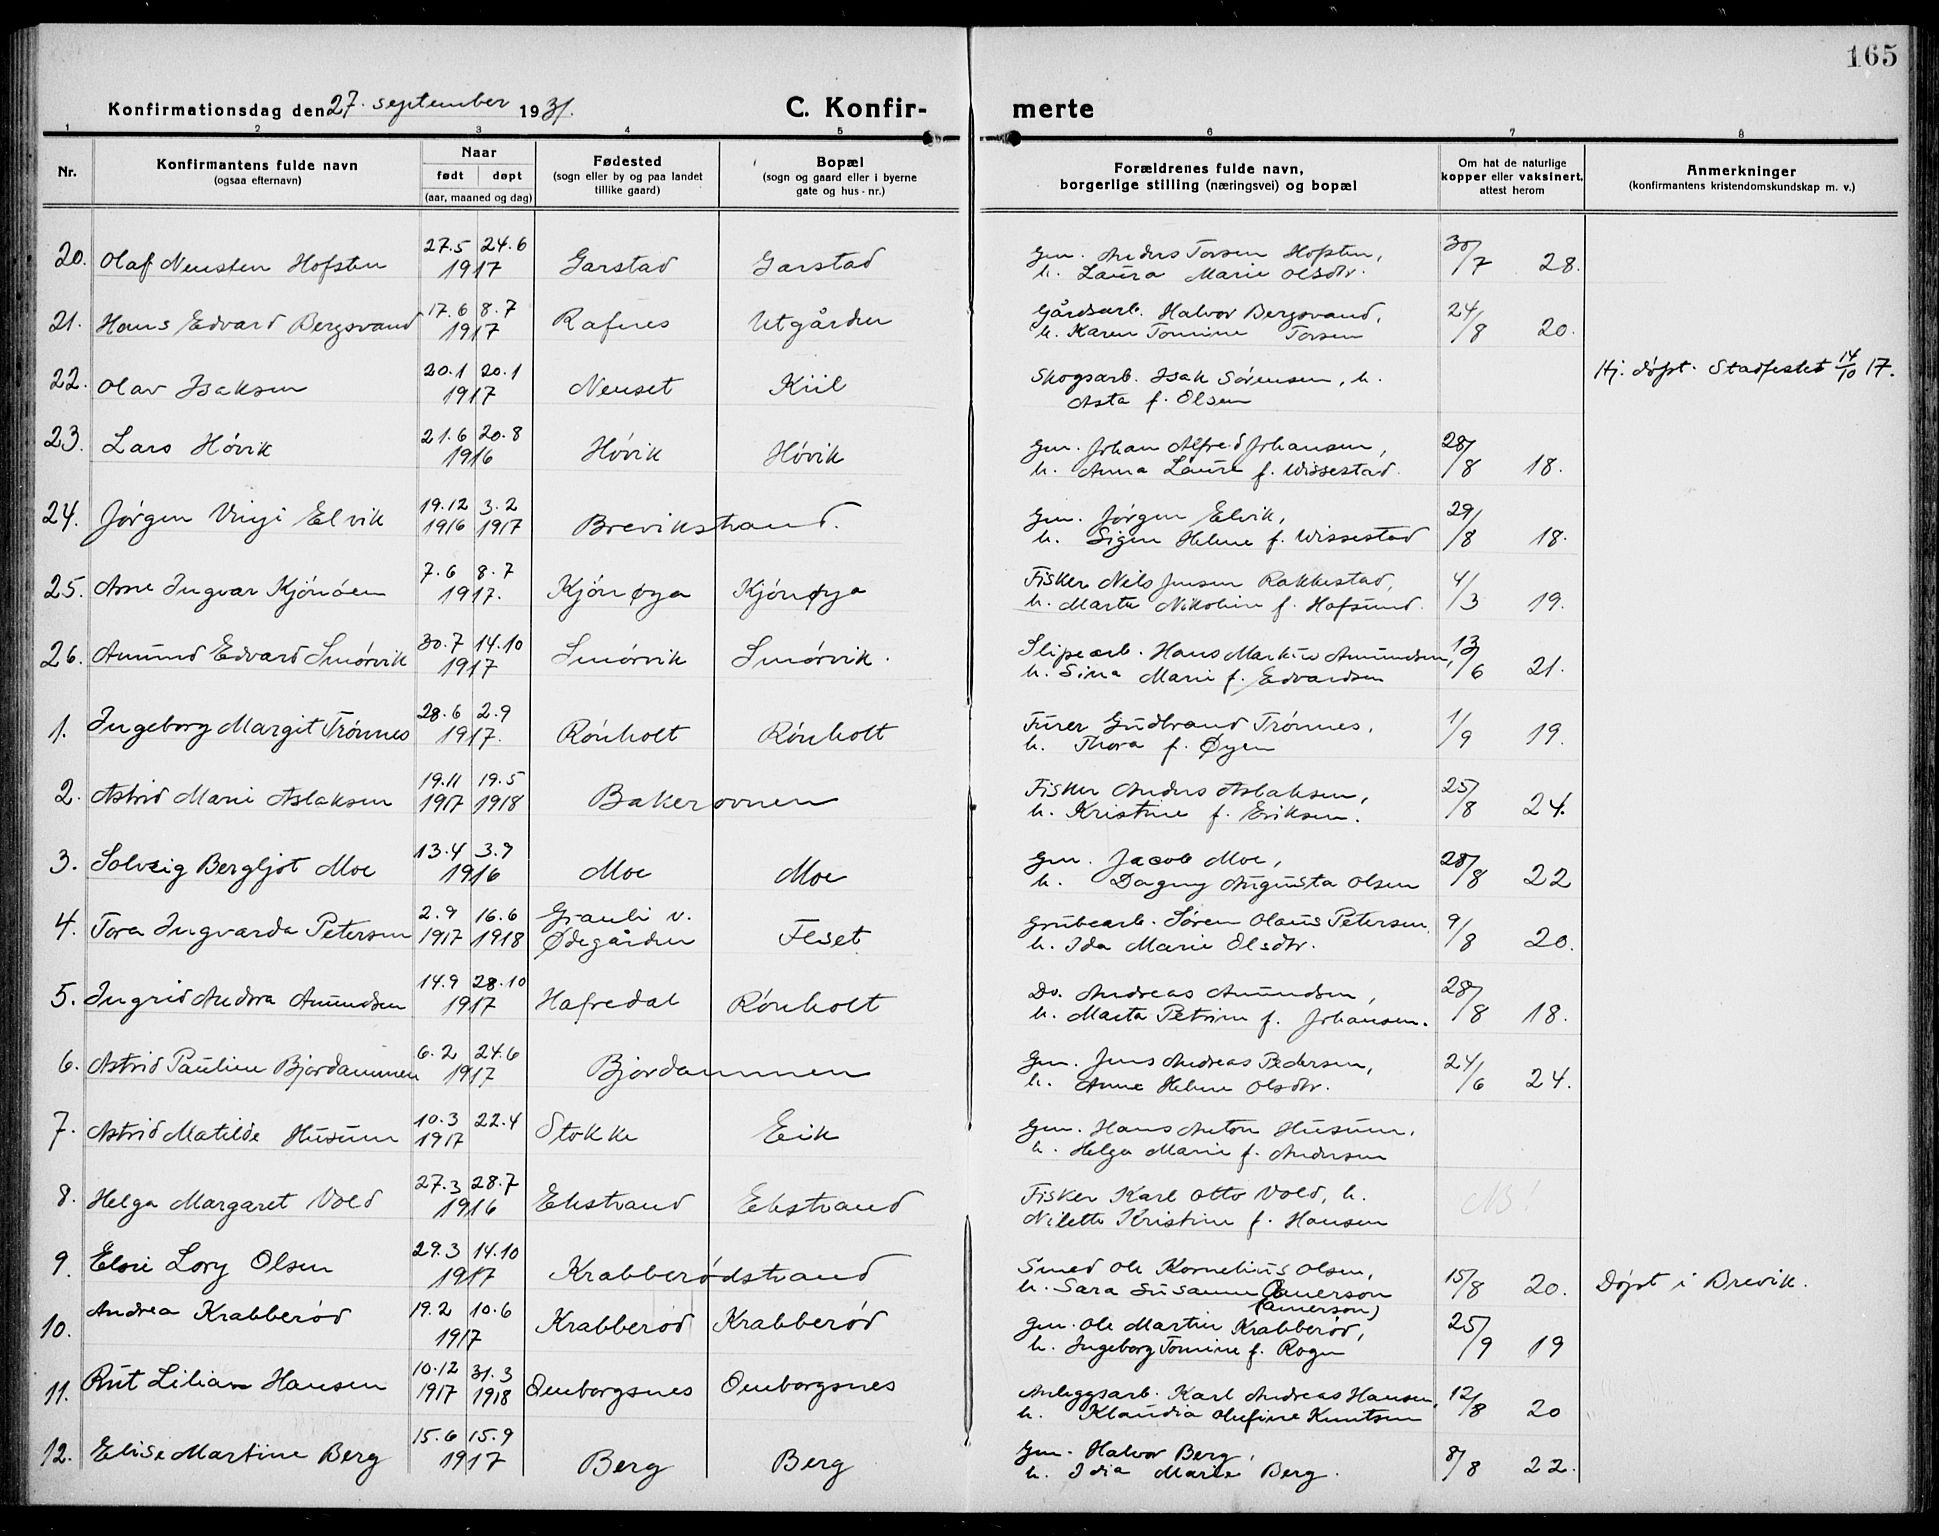 165
Konfirmationsdag den 27. september 1931.
C. Konfirmerte
1 2 3 4 5 6 7 8
Nr.
Konfirmantens fulde navn
(ogsaa efternavn)
Naar
født døpt
(aar, maaned og dag)
Fødested
(sogn eller by og paa landet
tillike gaard)
Bopæl
(sogn og gaard eller i byerne
gate og hus-nr.)
Forældrenes fulde navn,
borgerlige stilling (næringsvei) og bopæl
Om hat de naturlige
kopper eller vaksinert,
attest herom
Anmerkninger
(konfirmantens kristendomskundskap m. v.)
20. Olaf Neusten Hofsten 27.5 24.6 Garstad Garstad Gm. Anders Torsen Hofsten, 30/7 28.
1917 h. Laura Marie Olsdtr.
21. Hans Edvard Bergsvand 17.6 8.7 Rafnes Utgården Gårdsarb. Halvor Bergsvand, 24/8 20.
1917 h. Karen Tomine Torsen
22. Olav Isaksen 20.1 20.1 Neuset Kiil Skogsarb. Isak Sørensen, h. Hj. døpt. Stadfestet 14/10 17.
1917 Asta f. Olsen
23. Lars Høvik 21.6 20.8 Høvik Høvik Gm. Johan Alfred Johansen, 28/8 18.
1916 h. Anna Laura f. Wissestad.
24. Jørgen Elvik 19.12 3.2 Brevikstrand. Gm. Jørgen Elvik, 29/8 18.
1916 1917 h. Signe Helene f. Wissestad
25. Arne Ingvar Kjønøen 7.6 8.7 Kjønøya Kjønøya Fisker Nils Jensen Rakkestad, 4/3 19.
1917. h. Marta Nikoline f. Hafsund.
26. Amund Edvard Smørvik 30.7 14.10 Smørvik Smørvik. Slipearb. Hans Markus Amundsen, 13/6 21.
1917 h. Sina Marie f. Edvardsen
1. Ingeborg Margit Trønnes 28.6 2.9 Rønholt Rønholt Furer Gudbrand Trønnes, 1/9 19.
1917. h. Thora f. Øyen
2. Astrid Marie Aslaksen 19.11 19.5 Bakerovnen Fisker Anders Aslaksen, 25/8 24.
1917 1918 h. Kristine f. Eriksen.
3. Solveig Bergljot Moe 13.4 3.9 Moe Moe Gm. Jacob Moe, 28/8 22
1916 h. Dagny Augusta Olsen
4. Tora Ingvarda Petersen 2.9 16.6 Grauli v. Feset Grubearb. Søren Olaus Petersen, 9/8 20.
1917 1918 Ødegården h. Ida Marie Olsdtr.
5. Ingrid Andora Amundsen 14.9 28.10 Hafredal Rønholt Do. Andreas Amundsen, 28/8 18.
1917 h. Marta Petrine f. Johansen.
6. Astrid Pauline Bjordammen 6.2 24.6 Bjordammen Gm. Jens Andreas Pedersen, 24/6 24.
1917 h. Anne Helene Olsdtr.
7. Astrid Matilde Husum 10.3 22.4 Stokke Eik Gm. Hans Anton Husum,
1917 h. Helga Marie f. Andersen
8. Helga Margaret Vold 27.3 28.7 Ekstrand Ekstrand Fisker Karl Otto Vold, h. NB!
1916 Nilette Kristine f. Hansen
9. Elsie Lory Olsen 29.3 14.10 Krabberødstrand Smed Ole Kornelius Olsen, 15/8 20. Døpt i Brevik.
1917 h. Sara Susanne
(Amerson)
10. Andrea Krabberød 19.2 10.6 Krabberød Krabberød Gm. Ole Martin Krabberød, 25/9 19
1917 h. Ingeborg Tomine f. Rogn
11. Rut Lilian Hansen 10.12 31.3 Omborgsnes Omborgsnes Anleggsarb. Karl Andreas Hansen, 12/8 20
1917 1918 h. Klaudia Olufine Knutsen
12. Elise Martine Berg 15.6 15.9 Berg Berg Gm. Halvor Berg, 8/8 22.
1917 h. Idia Marie Berg.